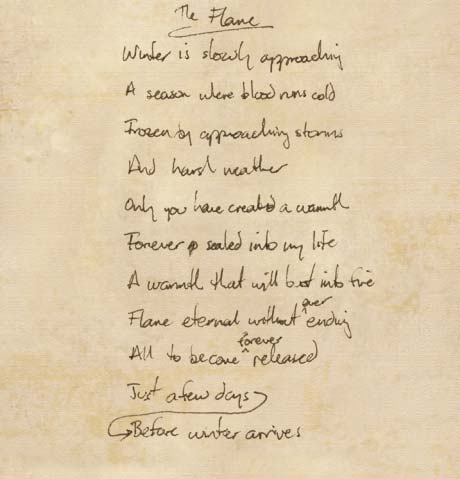 The Flame
Winter is slowly approaching
A season where blood runs cold
Frozen by approaching storms
And harsh weather
Only you have created a warmth
Forever sealed into my life
A warmth that will burst into fire
Flame eternal without ever ending
All to become forever released
Just a few days
Before winter arrives